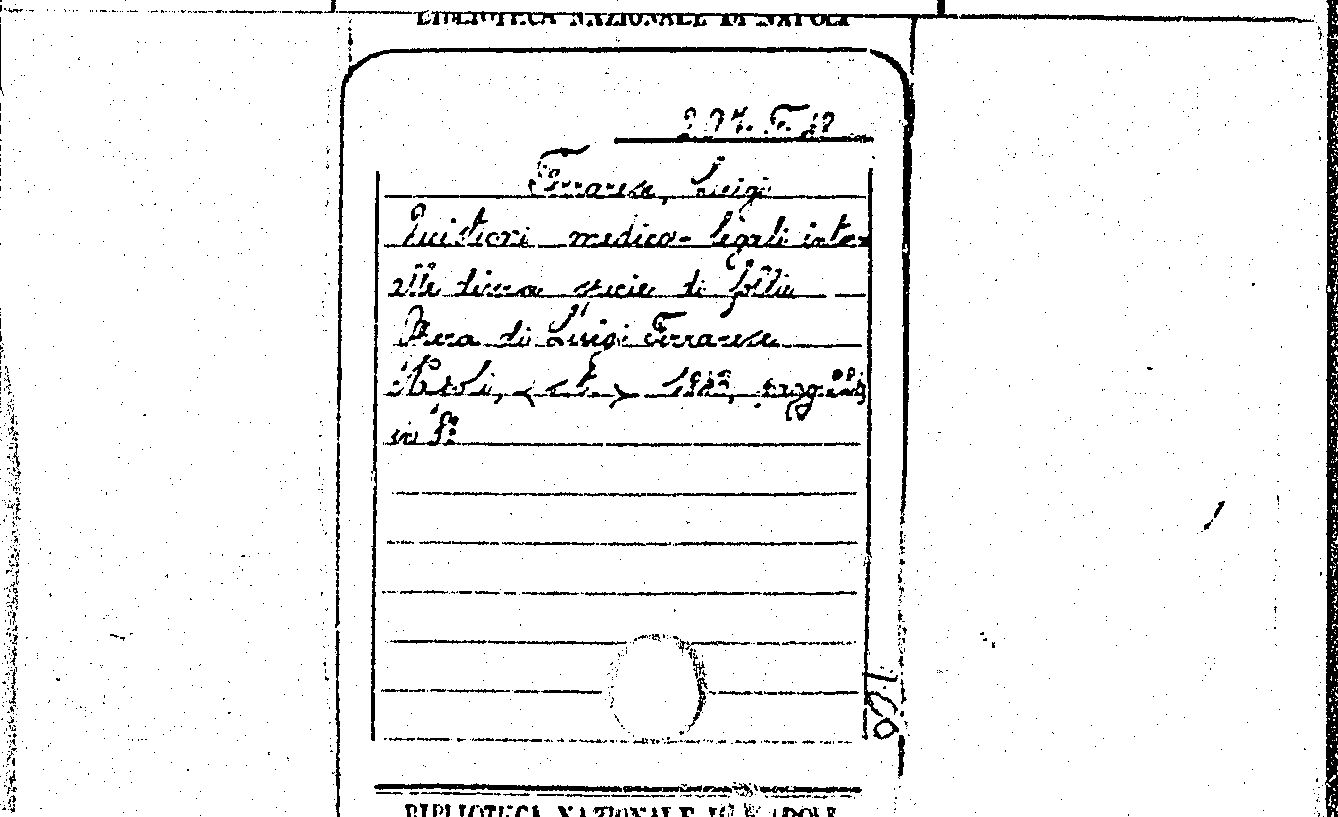 BIBLIOTECA NAZIONALE DI NAPOLI
207. F. 12
Ferrarese, Luigi
Quistioni medico-legali inter
alle diversa specie di follia
Opera di Luigi Ferrarese
Napoli, < s.t. >
in 8º
BIBLIOTECA NAZIONALE DI NAPOLI